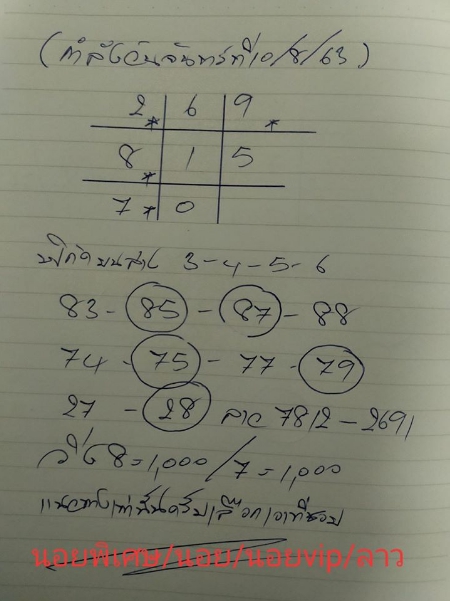 (กำลังวันจันทร์ที่ 10/8/63)
2* 6 9*
8* 1 5
7* 0
3-4-5-6
83 - 85 - 87 - 88
74 - 75 - 77 - 79
27 - 28 ลาว 7812 - 2691
วิ่ง 8 = 1,000 / 7 = 1,000
แนวทางเท่านั้นครับเลือกเอาที่ชอบ
นอยพิเศษ/นอย/นอยvip/ลาว